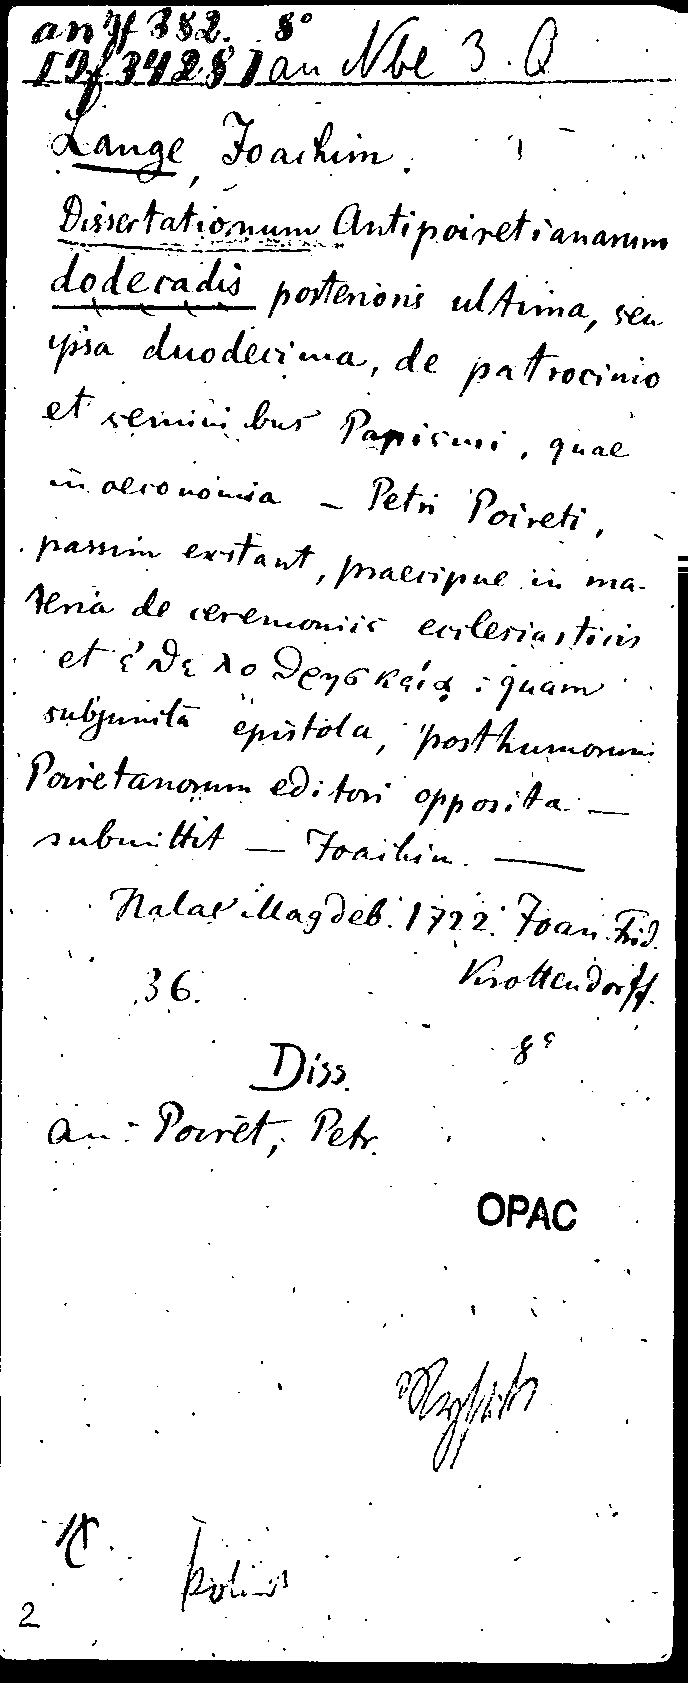 an 382. 8°
an Nbe 3. Q
Lange, Joachim.
Dissertationum Antipoiretianarum
dodecadis posterioris ultima, seu
ipsa duodecima, de patrocinio
et seminibus Papismi, quae
in oeconomia – Petri Poireti,
passim exstant, praecipue in ma-
teria de ceremoniis ecclesiasticis
et ἐθελοθρησκείᾳ : quam
subjuncta epistola, posthumorum
Poiretanorum editori opposita —
submittit — Joachim. —
Halae Magdeb. 1722. Joan. Frid.
36. Krottendorff.
8°
Diss.
an: Poiret, Petr.
OPAC
2